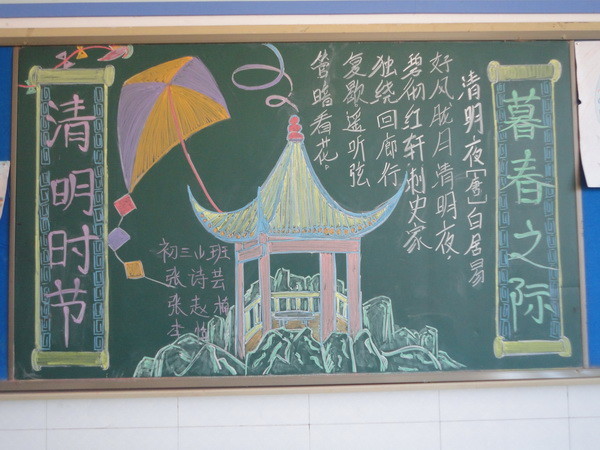 暮春之际
清明夜[唐]白居易
好风胧月清明夜，
碧彻红轩刺史家
独绕回廊行
复歇遥听弦
管暗看花。
清明时节
初三班
张诗芸
张赵